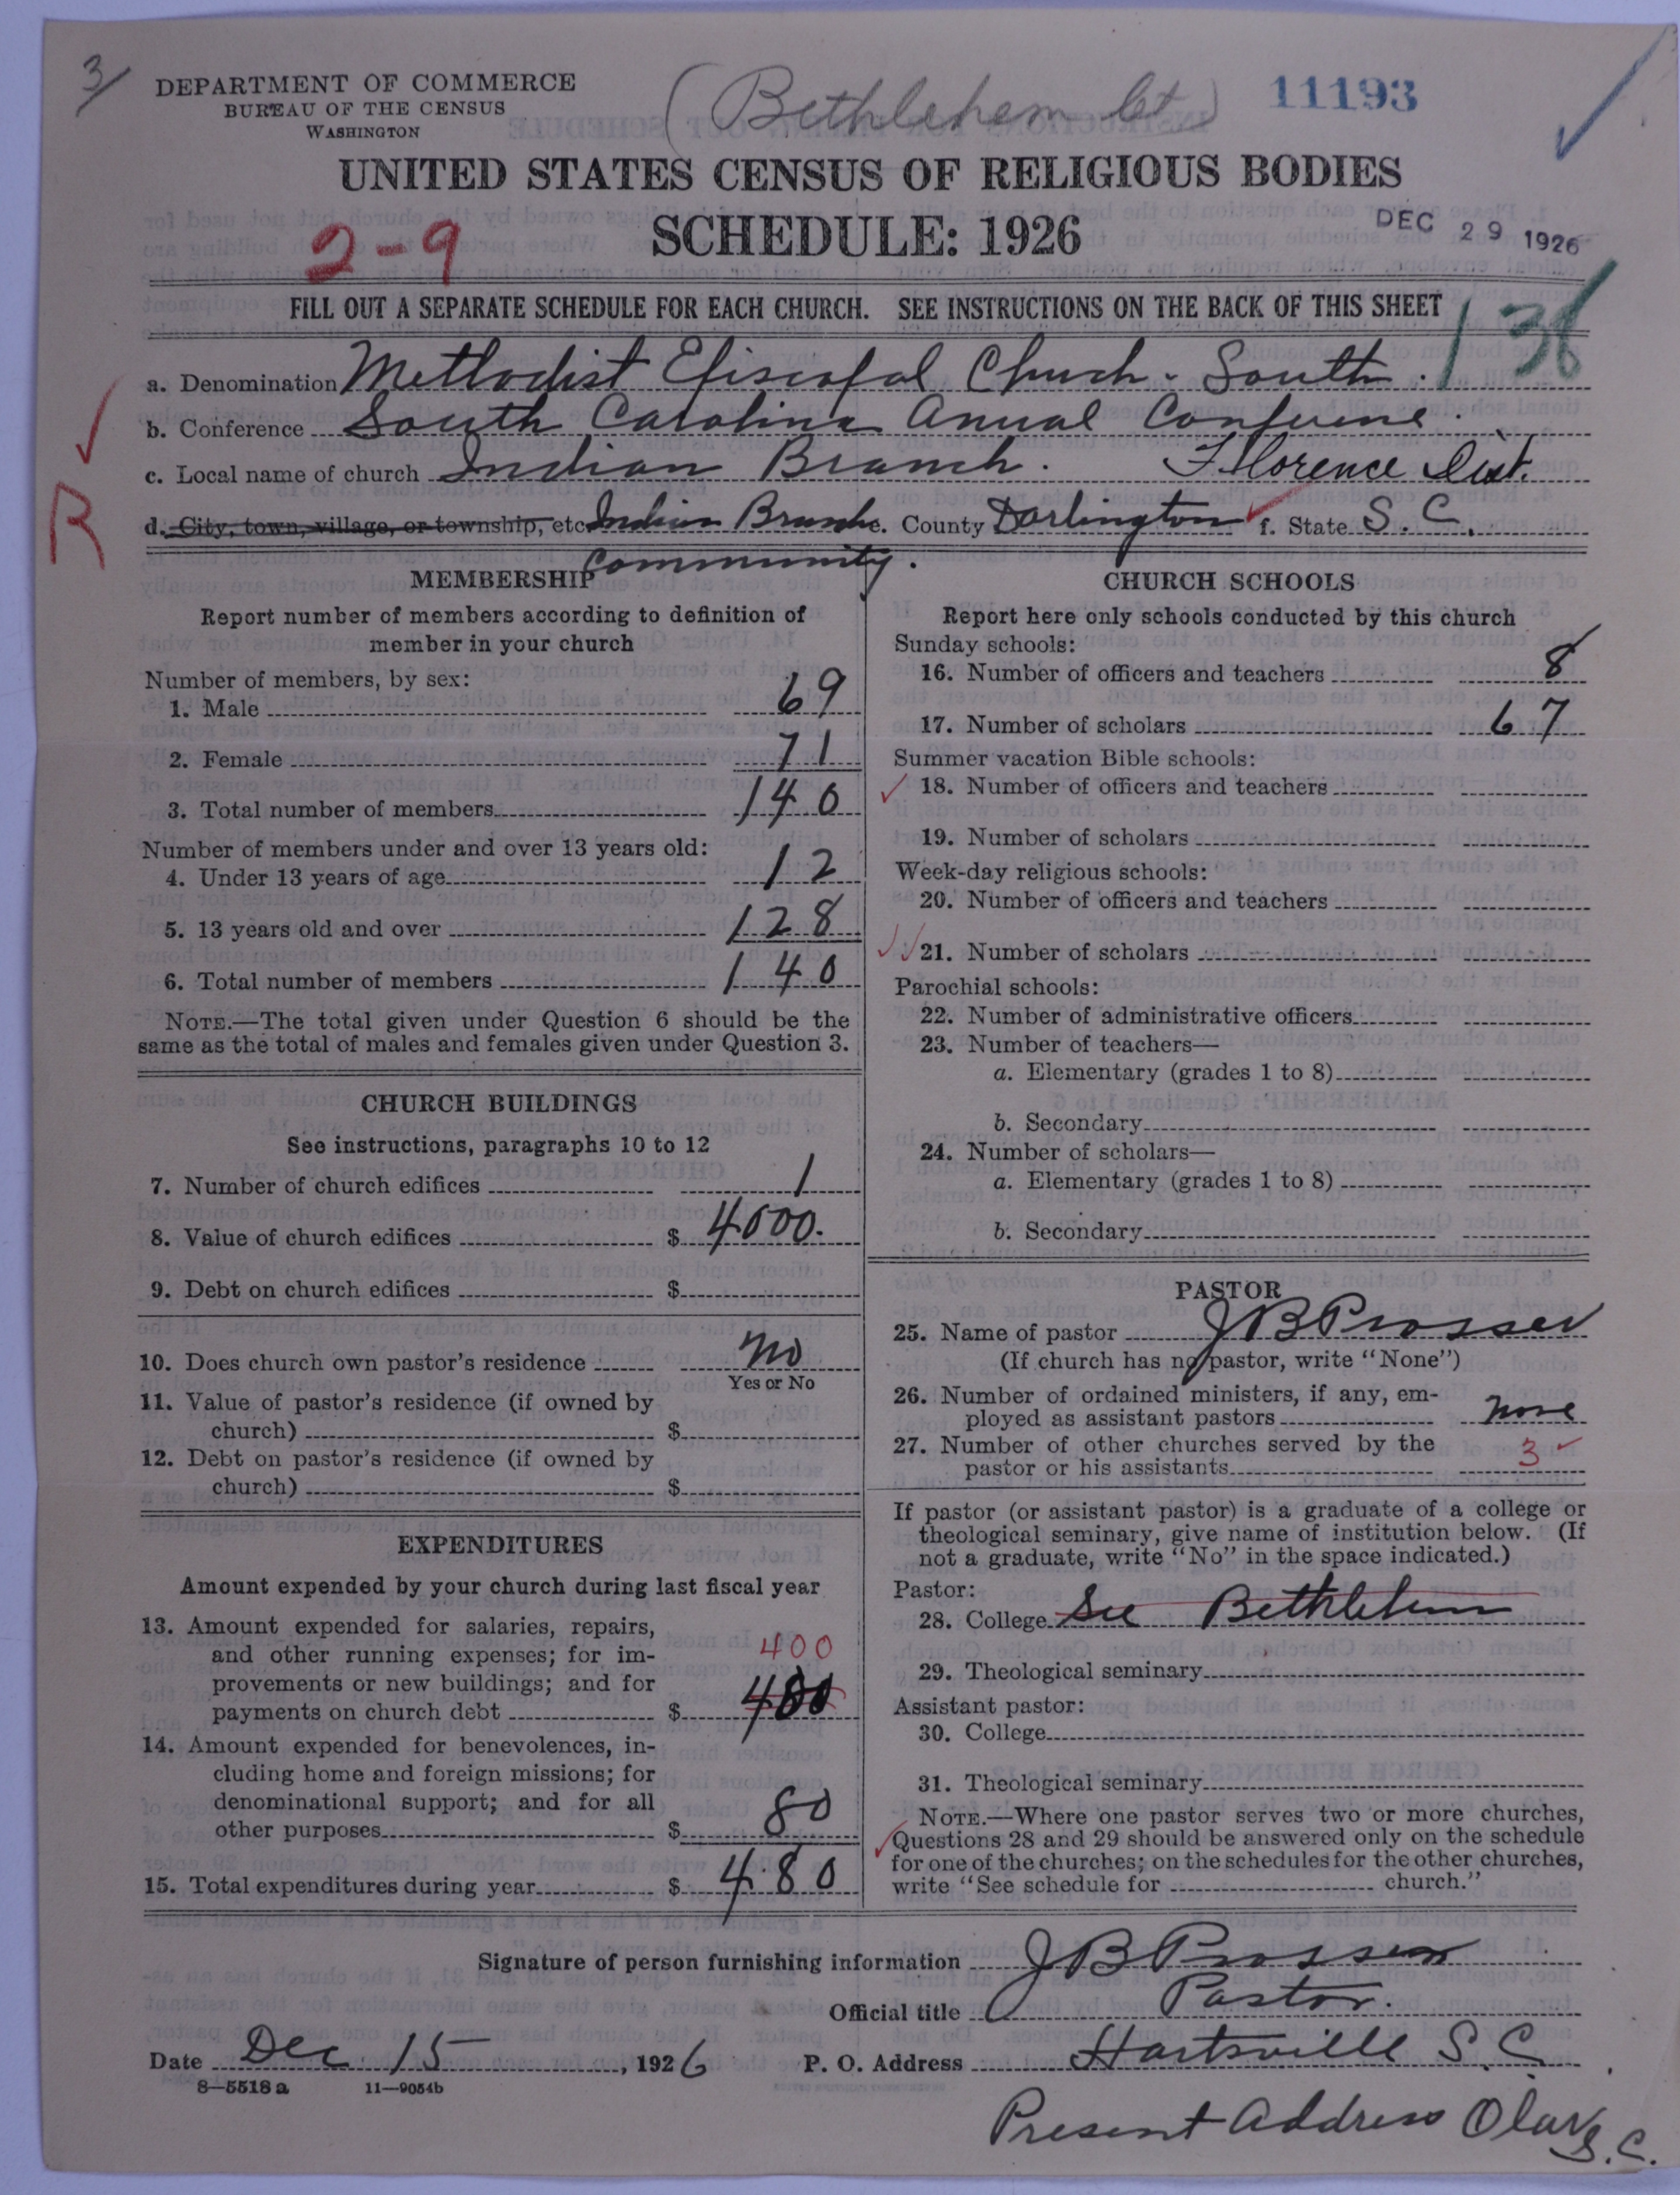 3/
DEPARTMENT OF COMMERCE
BUREAU OF THE CENSUS
WASHINGTON
(Bethlehem Ct.)
11193
UNITED STATES CENSUS OF RELIGIOUS BODIES
SCHEDULE: 1926
2-9
DEC 29 1926
FILL OUT A SEPARATE SCHEDULE FOR EACH CHURCH. SEE INSTRUCTIONS ON THE BACK OF THIS SHEET
136
a. Denomination Methodist Episcopal Church - South.
b. Conference South Carolina Anual Conference.
c. Local name of church Indian Branch. Florence Dist.
R
d. City, town, village, or township, etc. Indian Branch e. County Darlington f. State S. C.
Community.
MEMBERSHIP
Report number of members according to definition of
member in your church
Number of members, by sex:
1. Male 69
2. Female 71
3. Total number of members 140
Number of members under and over 13 years old:
4. Under 13 years of age 12
5. 13 years old and over 128
6. Total number of members 140
NOTE.—The total given under Question 6 should be the
same as the total of males and females given under Question 3.
CHURCH BUILDINGS
See instructions, paragraphs 10 to 12
7. Number of church edifices 1
8. Value of church edifices $ 4000.
9. Debt on church edifices $
10. Does church own pastor's residence No
Yes or No
11. Value of pastor's residence (if owned by
church) $
12. Debt on pastor's residence (if owned by
church) $
EXPENDITURES
Amount expended by your church during last fiscal year
13. Amount expended for salaries, repairs,
and other running expenses; for im-
400
provements or new buildings; and for
payments on church debt $ 480
14. Amount expended for benevolences, in-
cluding home and foreign missions; for
denominational support; and for all
other purposes $ 80
15. Total expenditures during year $ 480
CHURCH SCHOOLS
Report here only schools conducted by this church
Sunday schools:
16. Number of officers and teachers 8
17. Number of scholars 67
Summer vacation Bible schools:
18. Number of officers and teachers
19. Number of scholars
Week-day religious schools:
20. Number of officers and teachers
21. Number of scholars
Parochial schools:
22. Number of administrative officers
23. Number of teachers—
a. Elementary (grades 1 to 8)
b. Secondary
24. Number of scholars—
a. Elementary (grades 1 to 8)
b. Secondary
PASTOR
25. Name of pastor J B Prosser
(If church has no pastor, write "None")
26. Number of ordained ministers, if any, em-
ployed as assistant pastors None
27. Number of other churches served by the
pastor or his assistants 3
If pastor (or assistant pastor) is a graduate of a college or
theological seminary, give name of institution below. (If
not a graduate, write "No" in the space indicated.)
Pastor:
28. College See Bethlehem
29. Theological seminary
Assistant pastor:
30. College
31. Theological seminary
NOTE.—Where one pastor serves two or more churches,
Questions 28 and 29 should be answered only on the schedule
for one of the churches; on the schedules for the other churches,
write "See schedule for church."
Signature of person furnishing information J B Prosser
Official title Pastor.
Date Dec 15, 1926 P. O. Address Hartsville S. C.
8—5518 a 11—9054b
Present Address Olar S. C.